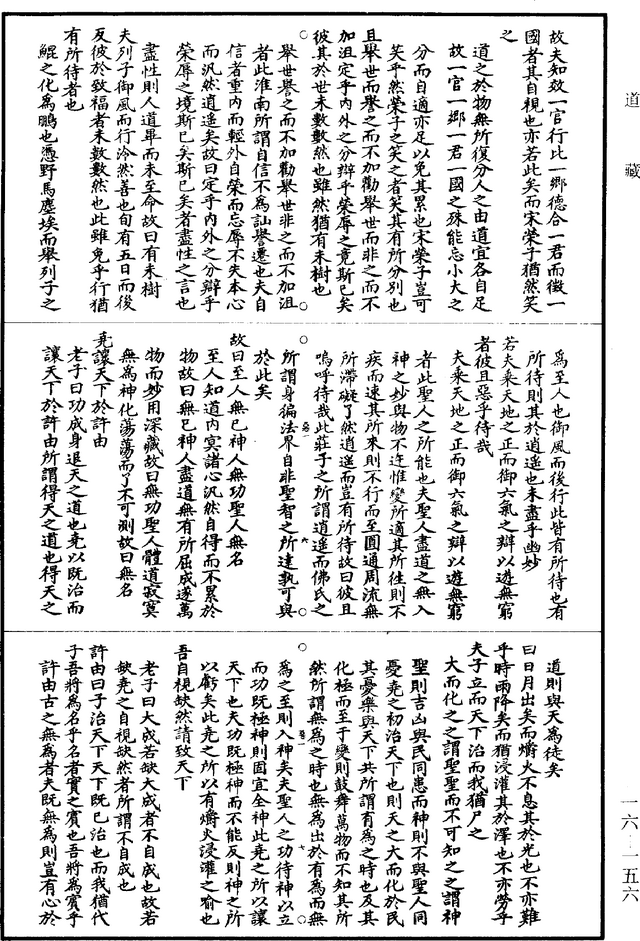 道藏
故夫知效一官行比一鄉德合一君而徵一
國者其自視也亦若此矣而宋榮子猶然笑
之
道之於物無所復分人之由道宜各自足
故一官一鄉一君一國之殊能忘小大之
分而自適亦足以免其累也宋榮子豈可
笑乎然榮子之笑之者笑其有所分別也
且舉世而譽之而不加勸舉世而非之而不
加沮定乎內外之分辯乎榮辱之竟斯已矣
彼其於世未數數然也雖然猶有未樹也
舉世譽之而不加勸舉世非之而不加沮
者此淮南所謂自信不為訕譽遷也夫自
信者重內而輕外自榮而忘辱不失本心
而汎然逍遥矣故曰定乎內外之分辯乎
榮辱之境斯已矣斯已矣者盡性之言也
盡性則人道畢而未至命故曰有未樹
夫列子御風而行泠然善也旬有五日而後
反彼於致福者未數數然也此雖免乎行猶
有所待者也
鯤之化為鵬也憑野馬塵埃而舉列子之
為至人也御風而後行此皆有所待也有
所待則其於逍遥也未盡乎幽妙
若夫乘天地之正而御六氣之辯以遊無窮
者彼且惡乎待哉
夫乘天地之正而御六氣之辯以遊無窮
者此聖人之所能也夫聖人盡道之無入
神之妙與物不迕惟變所適其所往則不
疾而速其所來則不行而至圓通周流無
所滯礙了然逍遥而豈有所待故曰彼且
嗚呼待哉此莊子之所謂逍遥而佛氏之
所謂身徧法界自非聖智之所達孰可與
於此矣
故曰至人無己神人無功聖人無名
至人知道內冥諸心汎然自得而不累於
物故曰無己神人盡道無有所屈成遂萬
物而妙用深藏故曰無功聖人體道寂寞
無為神化蕩蕩而了不可測故曰無名
堯讓天下於許由
老子曰功成身退天之道也堯以既治而
讓天下於許由所謂得天之道也得天之
道則與天為徒矣
曰日月出矣而爝火不息其於光也不亦難
乎時雨降矣而猶浸灌其於澤也不亦勞乎
夫子立而天下治而我猶尸之
大而化之之謂聖聖而不可知之之謂神
聖則吉凶與民同患而神則不與聖人同
憂堯之初治天下也則天之大而化於民
其憂樂與天下共所謂有為之時也及其
化極而至于變則鼓舞萬物而不知其所
然所謂無為之時也無為出於有為而無
為之至則入神矣夫聖人之功待神以立
而功既極神則固宜全神此堯之所以讓
天下也夫功既極神而不能反則神之所
以虧矣此堯之所以有爝火浸灌之喻也
吾自視缺然請致天下
老子曰大成若缺大成者不自成也故若
缺堯之自視缺然者所謂不自成也
許由曰子治天下天下既已治也而我猶代
子吾將為名乎名者實之賓也吾將為賓乎
許由古之無為者夫既無為則豈有心於
一六—一五六